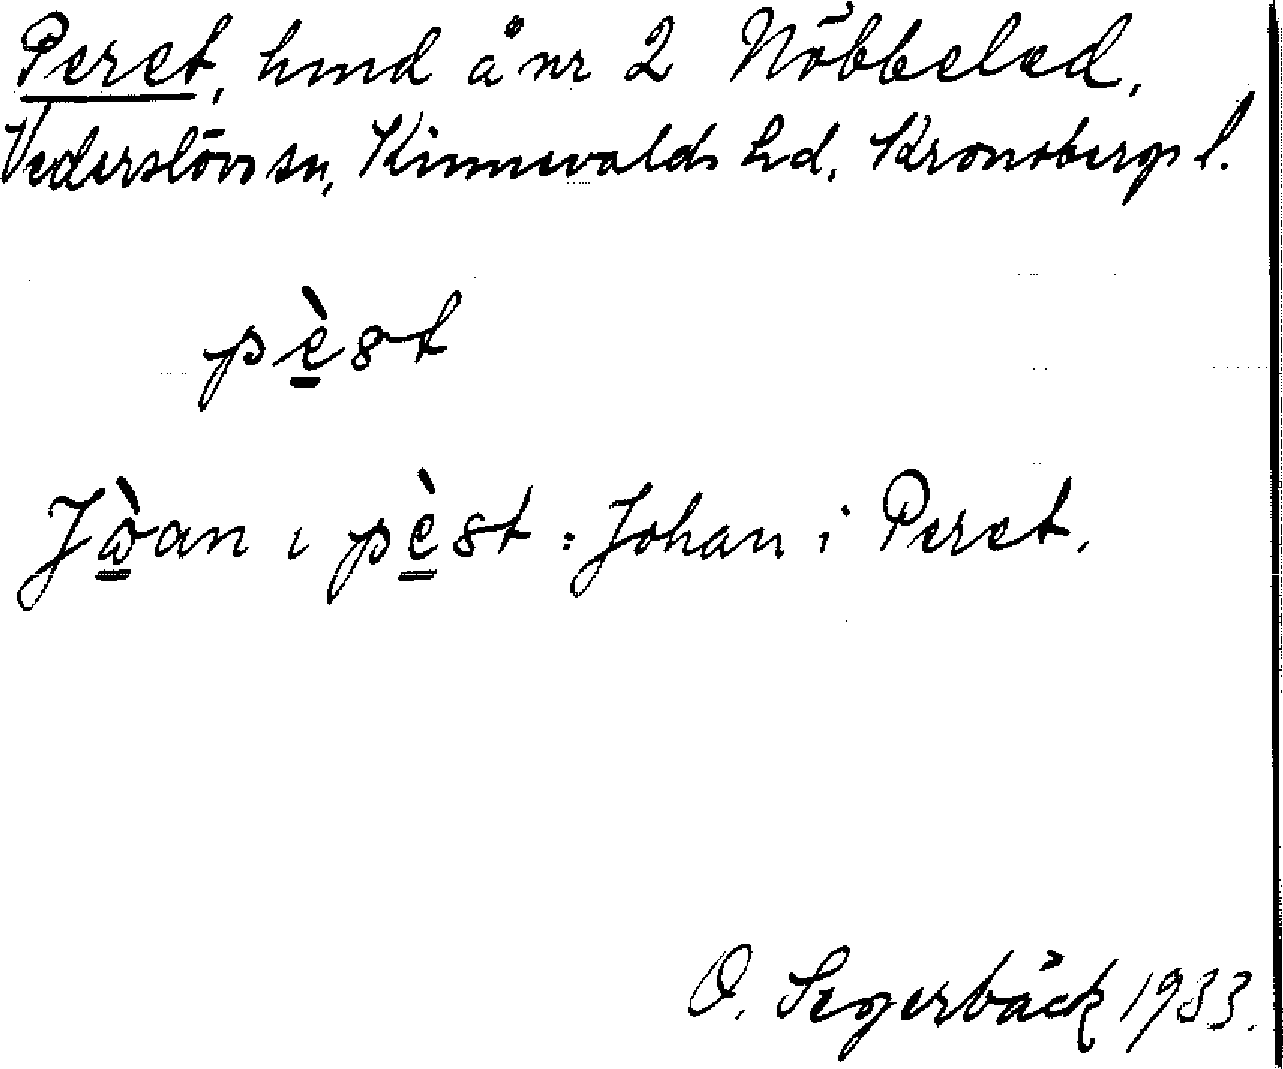 Peret, hmd å nr 2 Nöbbeled,
Vederslövs sn, Kinnevalds hd, Kronobergs l.
pè̱ət
Jò̱an ı pè̱ət : Johan i Peret.
O. Segerbäck 1933.